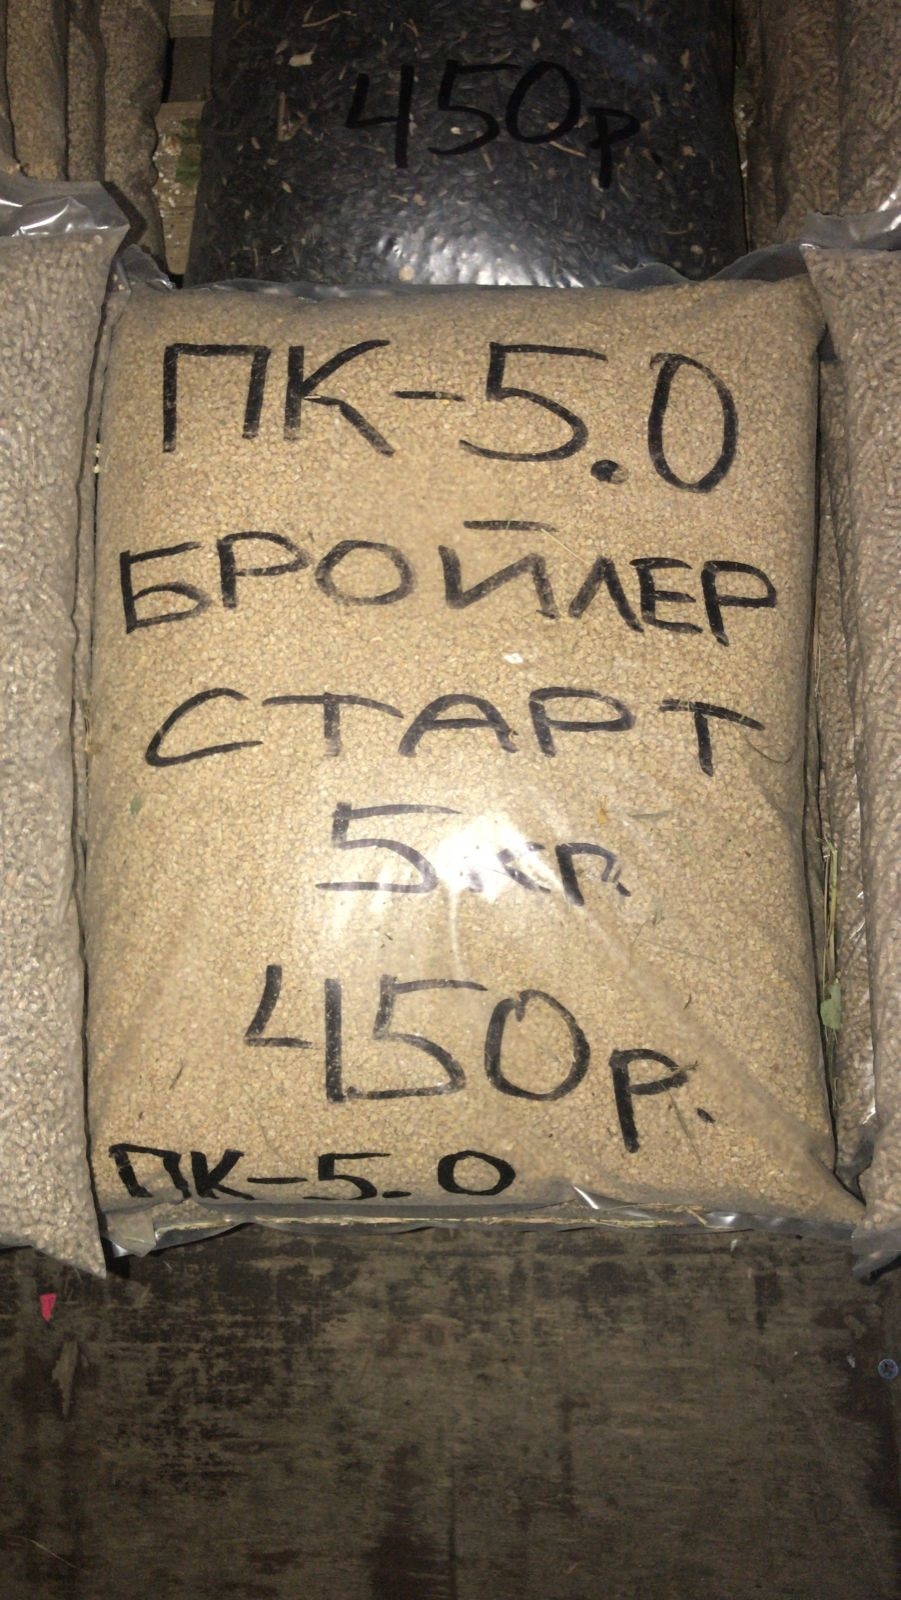 450р.
ПК-5.0
БРОЙЛЕР
СТАРТ
5кг.
450р.
ПК-5.0